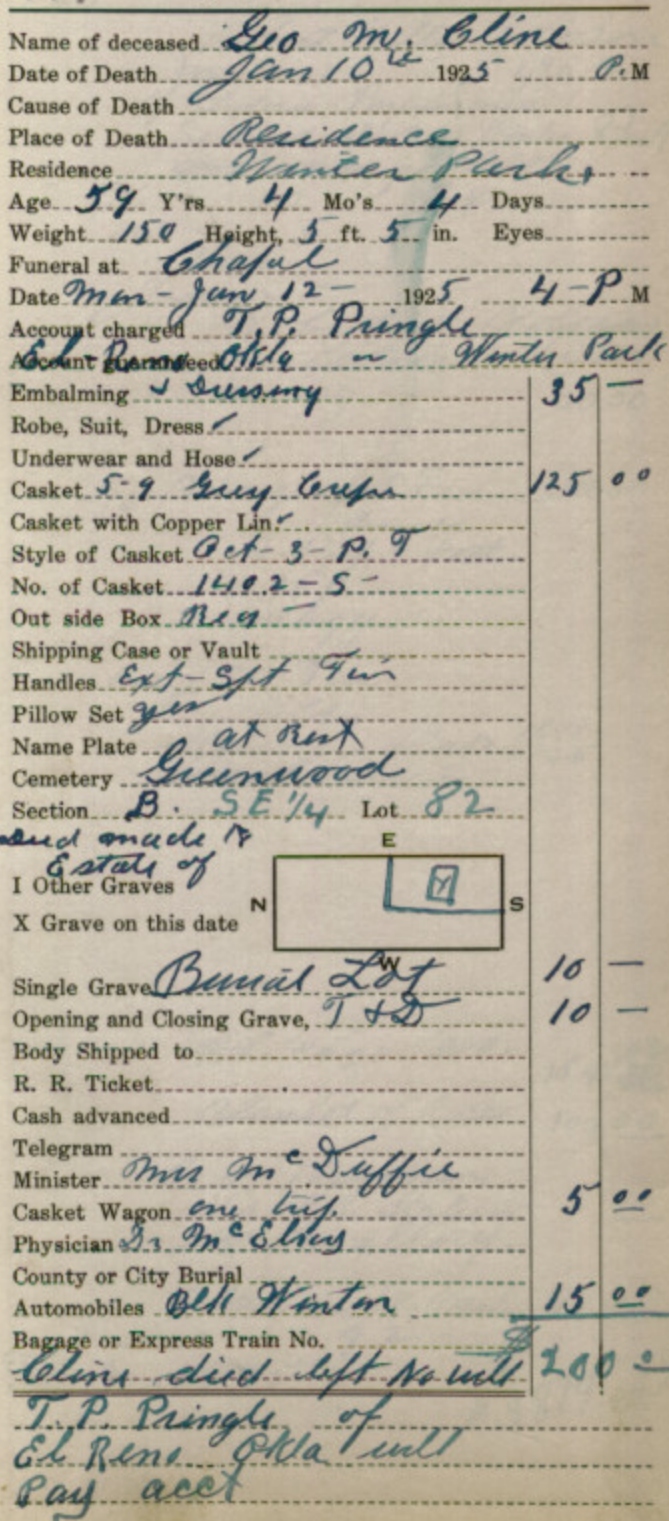 Name of deceased Geo M. Cline
Date of Death Jan 10th 1925 P.M
Cause of Death
Place of Death Residence
Residence Winter Park.
Age 59 Y'rs 4 Mo's 4 Days
Weight 150 Height, 5 ft. 5 in. Eyes
Funeral at Chapel
Date Mon - Jan 12 - 1925 4-P M
Account charged T. P. Pringle
Account guaranteed El-Reno Okla - Winter Park
Embalming & Dressing 35 —
Robe, Suit, Dress ✓
Underwear and Hose ✓
Casket 5-9 Grey Crepe 125 00
Casket with Copper Lin. ✓
Style of Casket Oct - 3 - P. T
No. of Casket 1402 - S -
Out side Box Reg —
Shipping Case or Vault
Handles Ext - Spt
Pillow Set yes
Name Plate at Rest
Cemetery Greenwood
Section B. SE 1/4 Lot 82
Deed made to
Estate of
E
I Other Graves
N S
X Grave on this date
W
Single Grave Burial Lot 10 —
Opening and Closing Grave, T & D 10 —
Body Shipped to
R. R. Ticket
Cash advanced
Telegram
Minister Mrs McDuffie
Casket Wagon one trip 5 00
Physician Dr
County or City Burial
Automobiles Blk Winton 15 00
Bagage or Express Train No.
Cline died left No will $ 200 0
T. P. Pringle of
El Reno Okla will
Pay acct